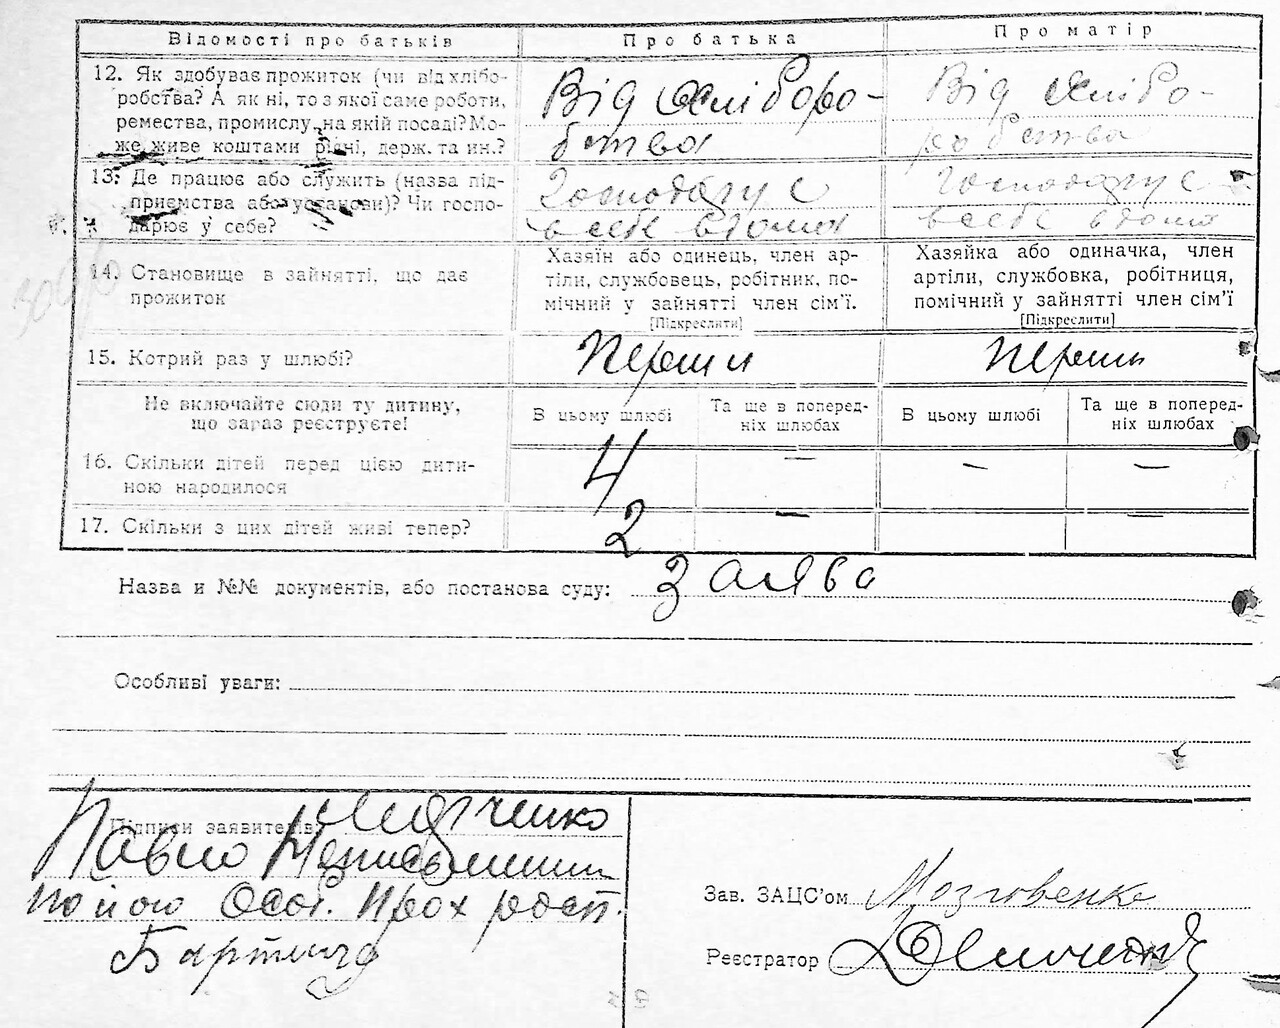 Відомості про батьків
Про батька
Про матір
12. Як здобуває прожиток (чи від хлібо-
робства? А як ні, то з якої саме роботи,
ремества, промислу, на якій посаді? Мо-
же живе коштами рідні, держ. та ин.?
Від хліборо-
бства
Від хлібо-
робства
13. Де працює або служить (назва під-
приємства або установи)? Чи госпо-
дарює у себе?
Господарує
в себе вдома
Господарує
в себе вдома
14. Становище в зайнятті, що дає
прожиток
Хазяїн або одинець, член ар-
тіли, службовець, робітник, по-
мічний у зайнятті член сім'ї.
[Підкреслити]
Хазяйка або одиначка, член
артіли, службовка, робітниця,
помічний у зайнятті член сім'ї
[Підкреслити]
15. Котрий раз у шлюбі?
Перший
Не включайте сюди ту дитину,
що зараз реєструєте!
В цьому шлюбі
Та ще в поперед-
ніх шлюбах
В цьому шлюбі
Та ще в поперед-
ніх шлюбах
16. Скільки дітей перед цією дити-
ною народилося
4
—
—
—
17. Скільки з цих дітей живі тепер?
2
—
—
Назва и №№ документів, або постанова суду:
Заява
Особливі уваги:
Підписи заявителів
Павло Неписьменний
по його Особ. Прох розп.
Зав. ЗАЦС'ом
Мозговенко
Реєстратор